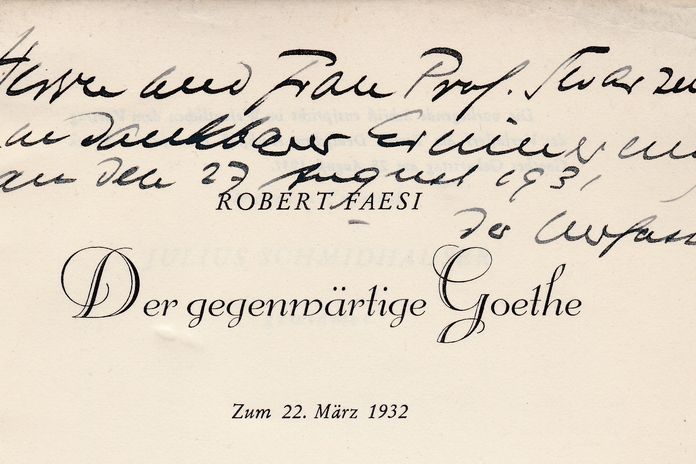 Herrn und Frau Prof.
in dankbarer Erinnerung
an den 27 August 1931
der Verfass
ROBERT FAESI
Der gegenwärtige Goethe
Zum 22. März 1932